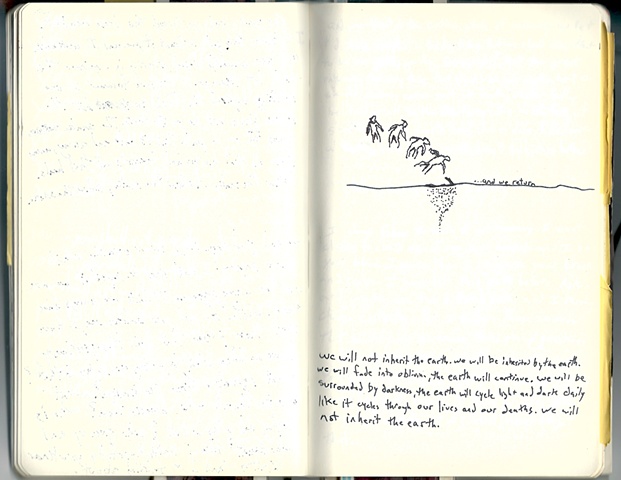 ...and we return
we will not inherit the earth. we will be inherited by the earth.
we will fade into oblivion, the earth will continue. we will be
surrounded by darkness, the earth will cycle light and dark daily
like it cycles through our lives and our deaths. we will
not inherit the earth.